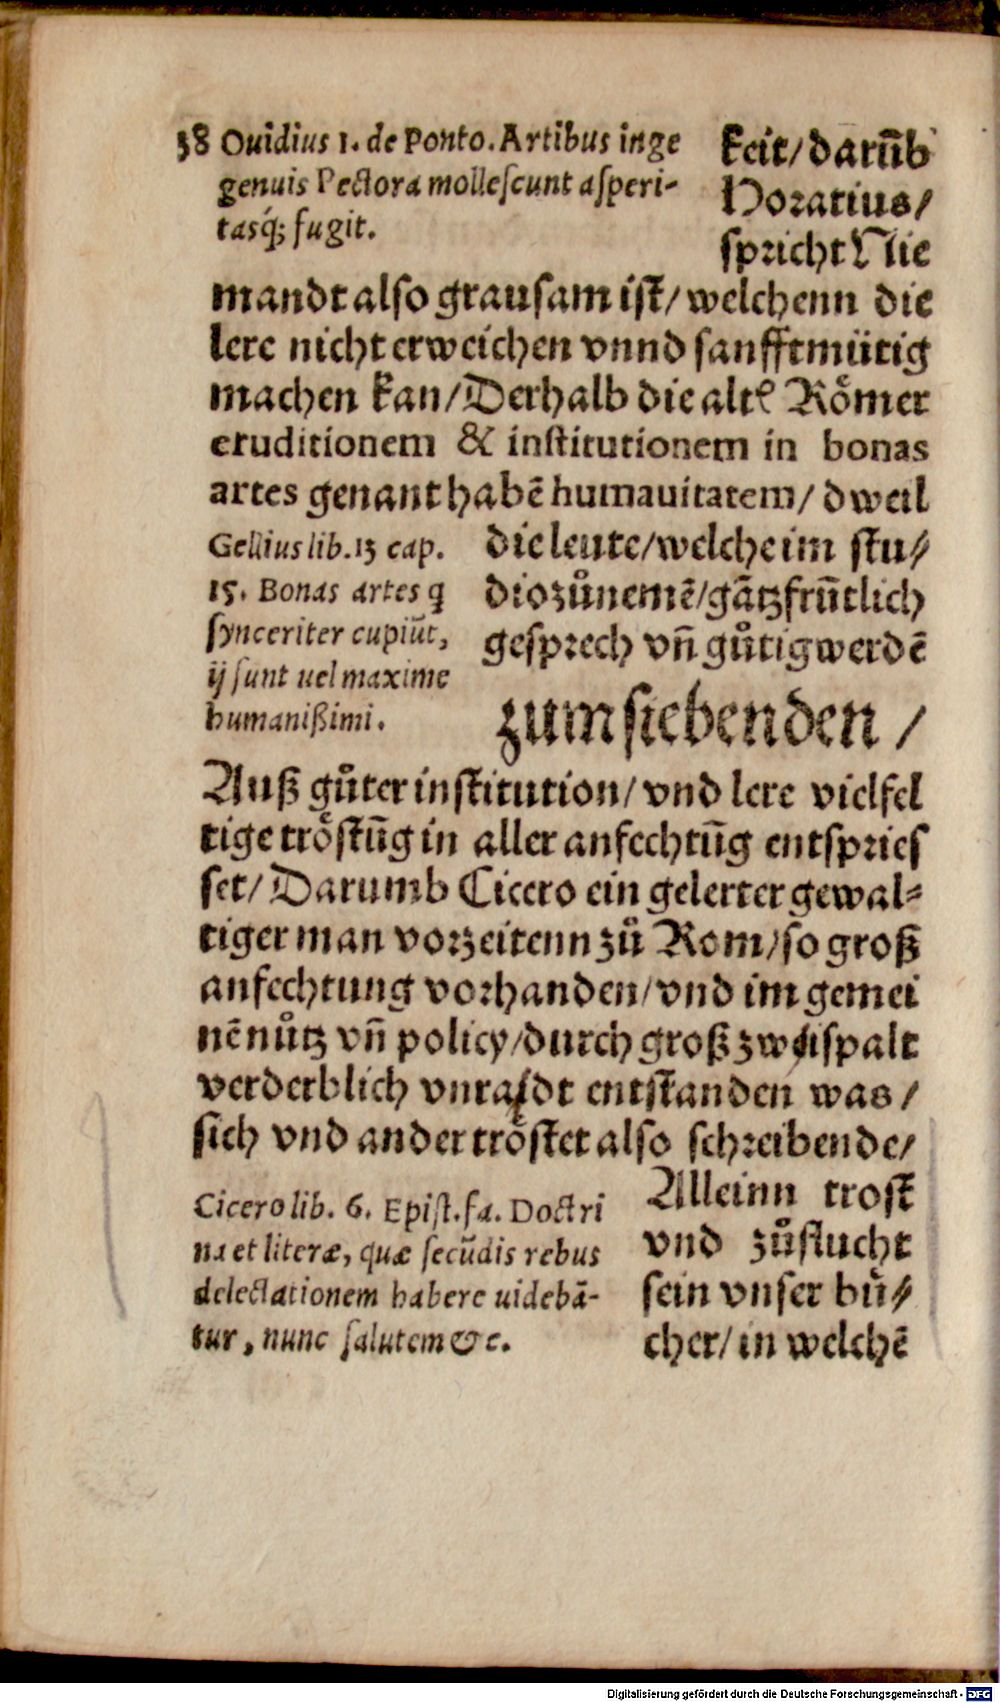 38 Ouidius 1. de Ponto. Artibus inge
genuis Pectora mollescunt asperi-
tasq́; fugit.
keit/ darũb
Horatius/
spricht Nie
mandt also grausam ist/ welchenn die
lere nicht erweichen vnnd sanfftmütig
machen kan/ Derhalb die altẽ Rőmer
eruditionem & institutionem in bonas
artes genant habẽ humauitatem/ dweil
Gellius lib. 13 cap.
15. Bonas artes q
synceriter cupiũt,
ij sunt uel maxime
humanißimi.
die leute/ welche im stu⸗
dio zůnemẽ/ gãtz frũtlich
gesprech vñ gůtig werdẽ
zum siebenden /
Auß gůter institution/ vnd lere vielfel
tige trőstũg in aller anfechtũg entspries
set/ Darumb Cicero ein gelerter gewal⸗
tiger man vorzeitenn zů Rom/ so groß
anfechtung vorhanden/ vnd im gemei
nẽ nůtz vñ policy/ durch groß zwispalt
verderblich vnradt entstanden was/
sich vnd ander trőstet also schreibende/
Cicero lib. 6. Epist. fa. Doctri
na et literæ, quæ secũdis rebus
delectationem habere uidebã-
tur, nunc salutem &c.
Alleinn trost
vnd zůflucht
sein vnser bů⸗
cher/ in welchẽ
Digitalisierung gefördert durch die Deutsche Forschungsgemeinschaft - DFG